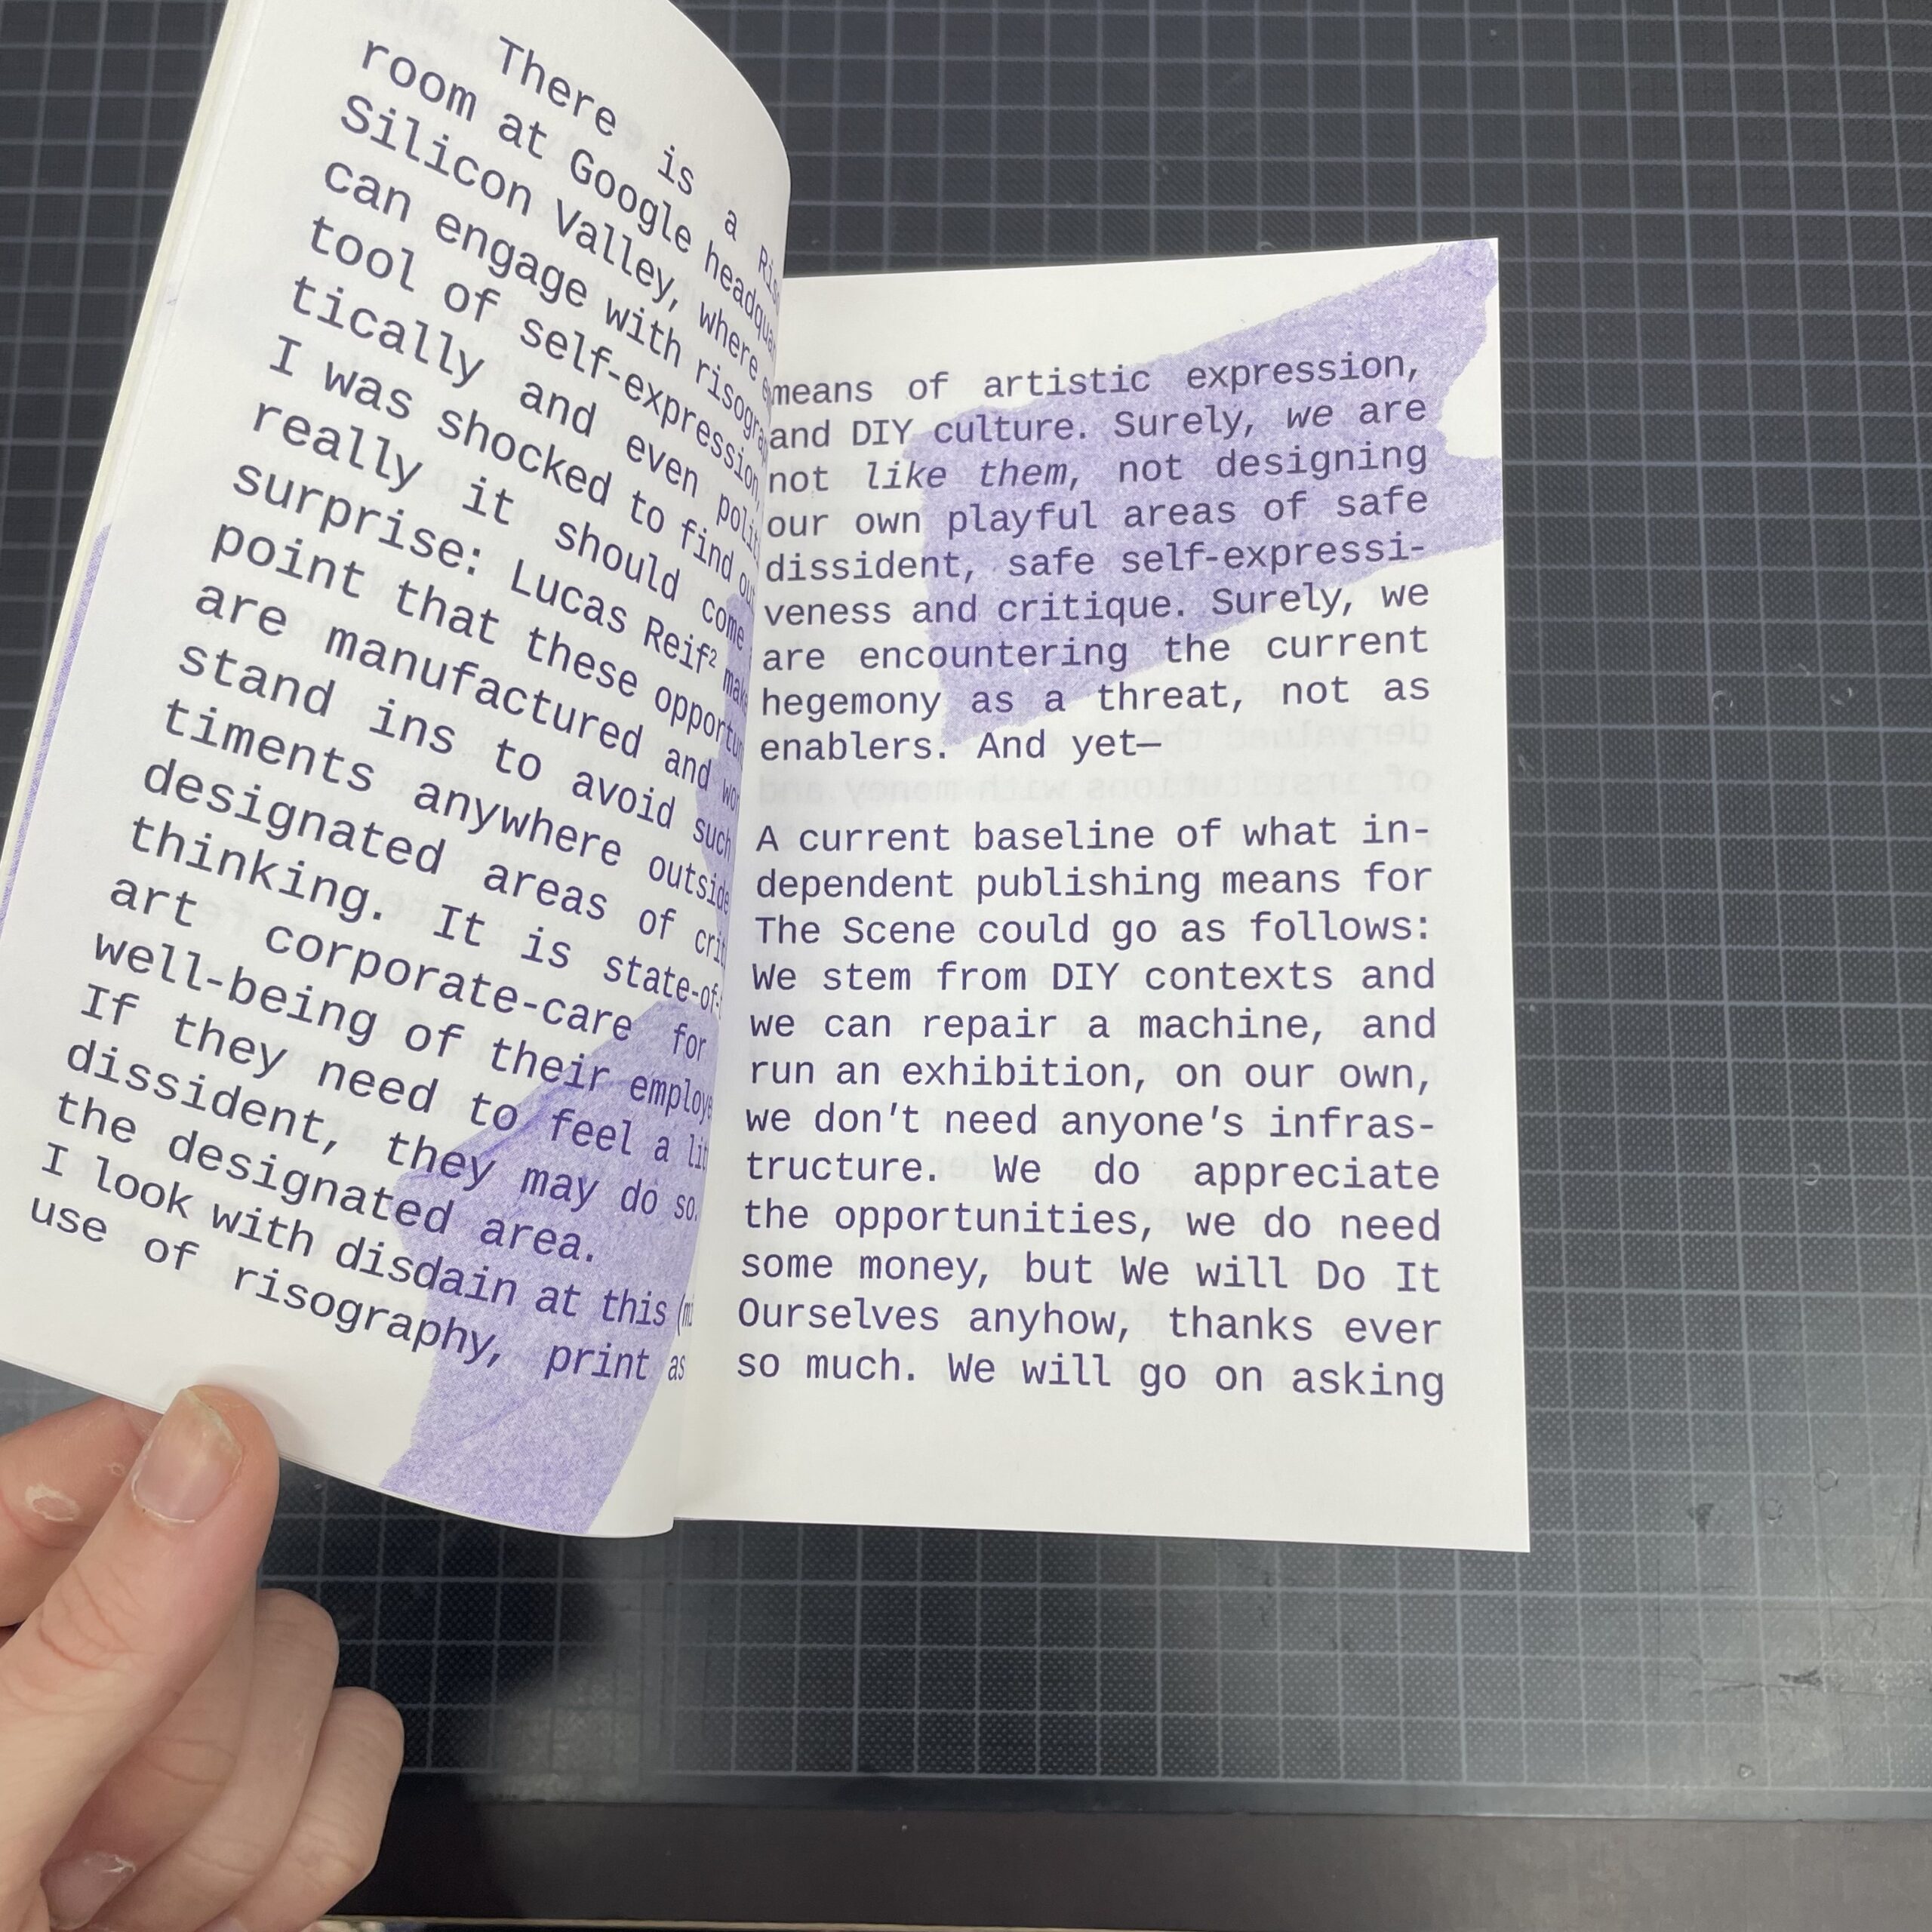 There is a
room at Google
Silicon Valley, where
can engage with
tool of self-expression,
tically and even
I was shocked to find out
really it should come
surprise: Lucas Reif²
point that these
are manufactured and
stand ins to avoid such
timents anywhere outside
designated areas of
thinking. It is
art corporate-care for
well-being of their
If they need to feel a
dissident, they may do so.
the designated area.
I look with disdain at this
use of risography, print as
means of artistic expression,
and DIY culture. Surely, we are
not like them, not designing
our own playful areas of safe
dissident, safe self-expressi-
veness and critique. Surely, we
are encountering the current
hegemony as a threat, not as
enablers. And yet—
A current baseline of what in-
dependent publishing means for
The Scene could go as follows:
We stem from DIY contexts and
we can repair a machine, and
run an exhibition, on our own,
we don't need anyone's infras-
tructure. We do appreciate
the opportunities, we do need
some money, but We will Do It
Ourselves anyhow, thanks ever
so much. We will go on asking